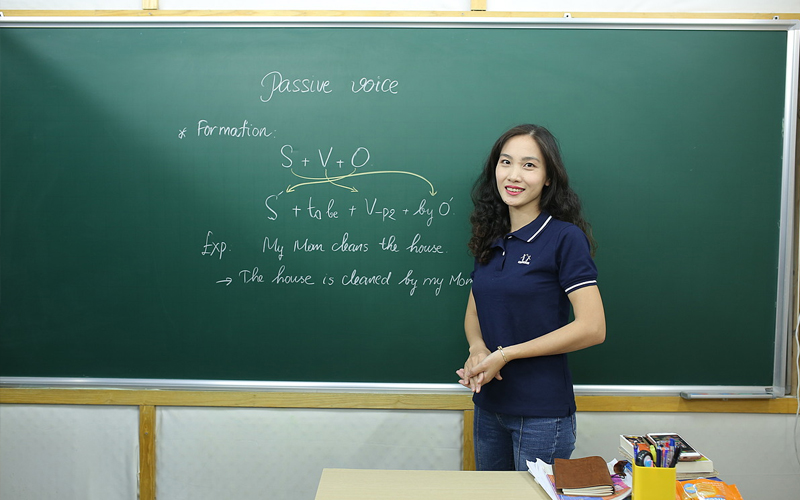 Passive voice
* Formation:
S + V + O
S' + to be + V-p2 + by O'.
Exp. My Mom cleans the house.
→ The house is cleaned by my Mom